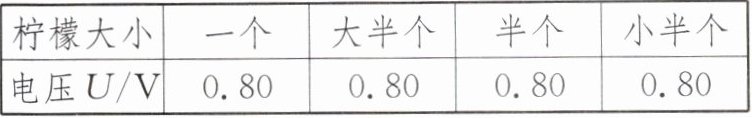 柠檬大小 一个 大半个 半个 小半个
电压U/V 0.80 0.80 0.80 0.80